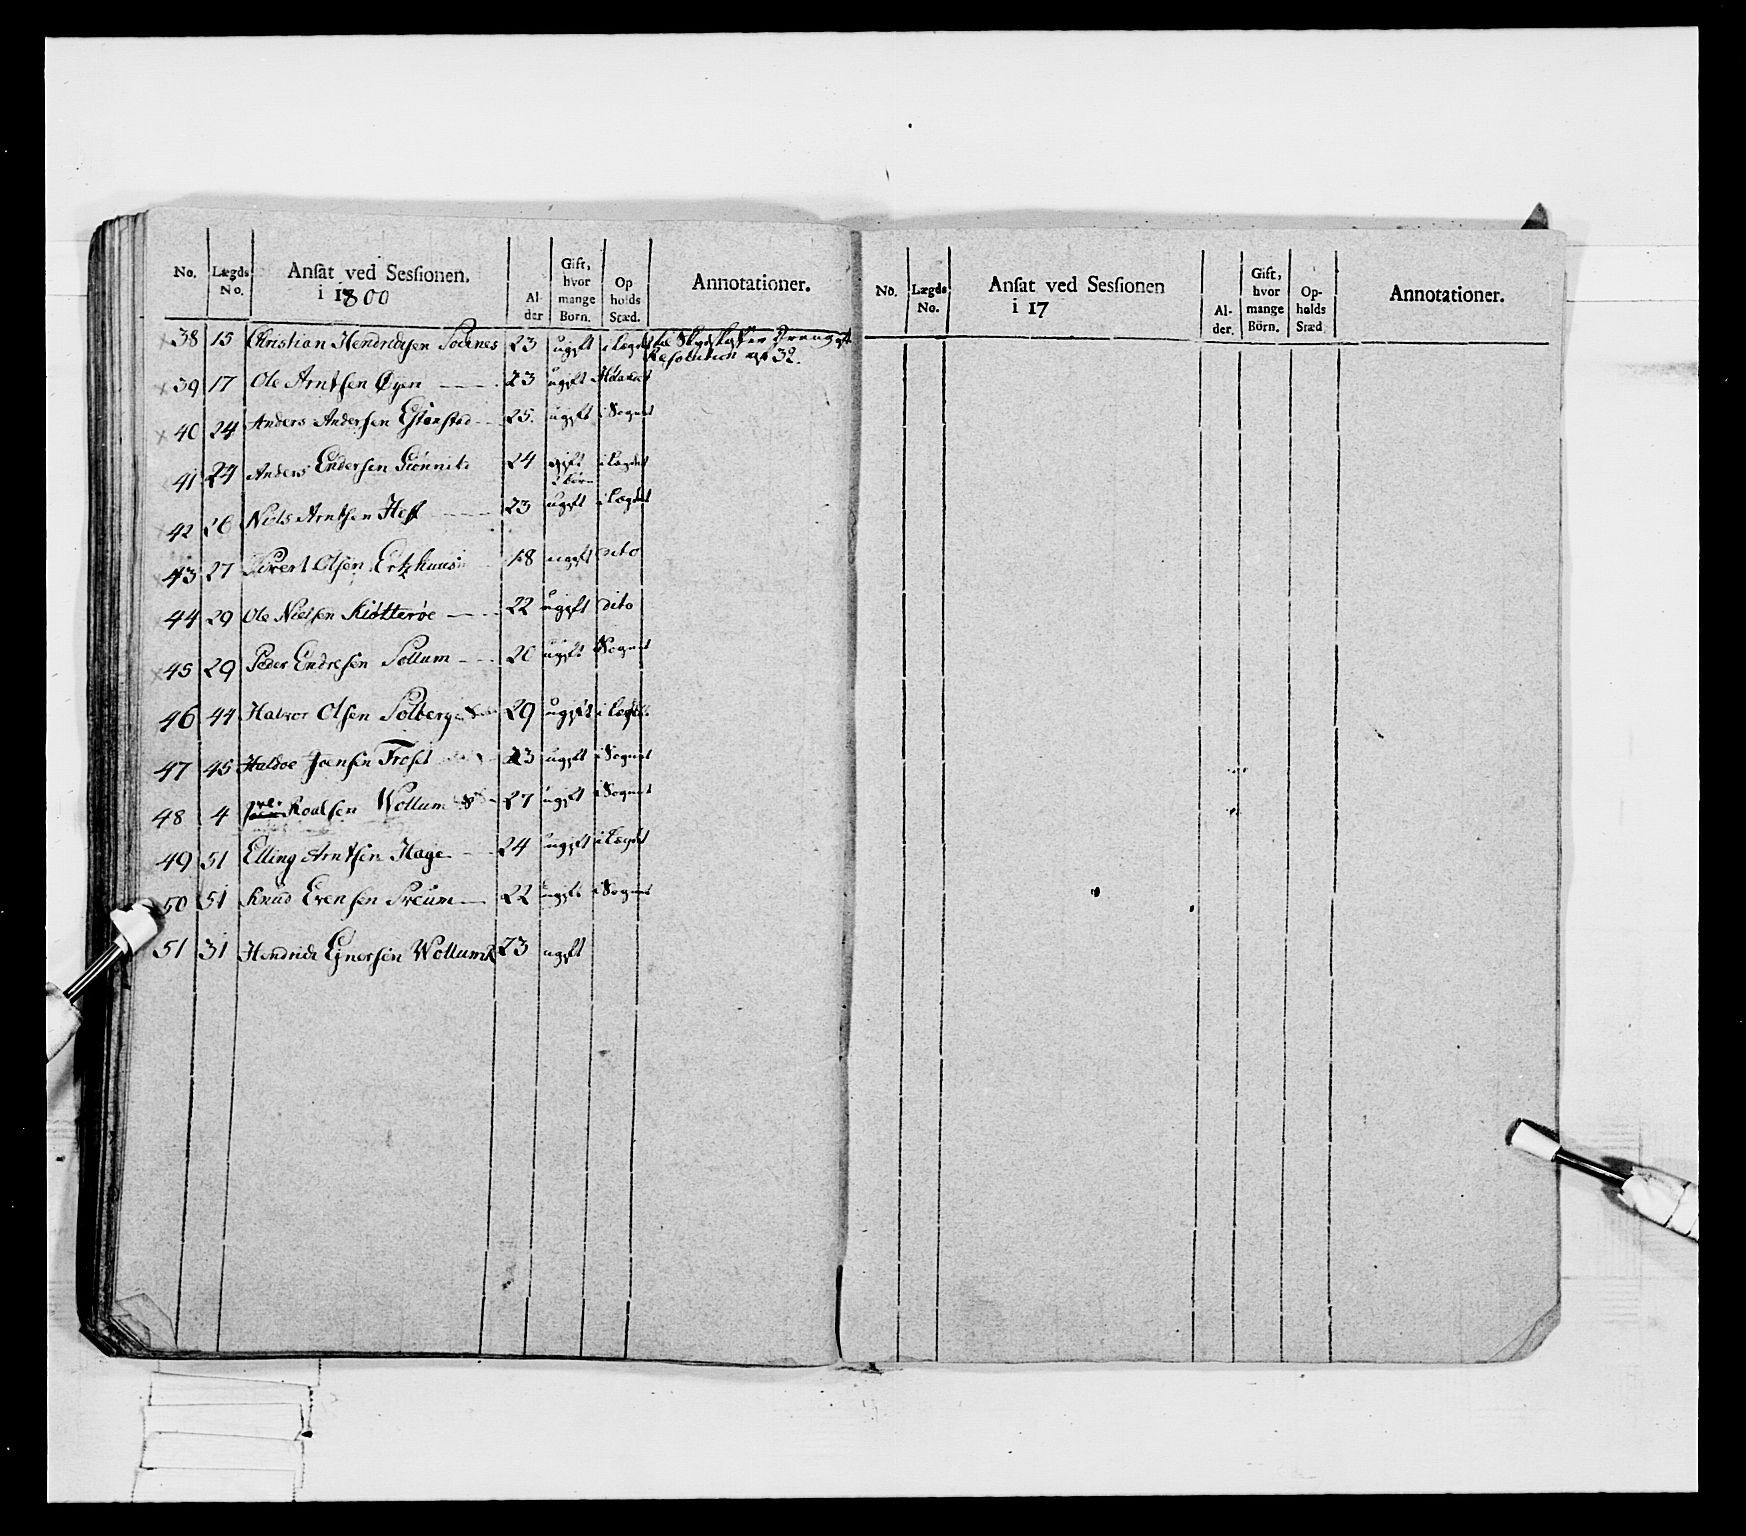 No. Lægds No. Ansat ved Sessionen. i 1800 Alder Gift, hvor mange Born. Op holds Stæd. Annotationer.
38 15 Christian Hendrichsen 23 ugift i Lægdet
Resolution af 32.
39 17 Ole Arntsen Øyen 23 ugift
40 24 Anders Andersen 25. ugift i Sognet
41 24 Anders Endersen 24 gift i Lægdet
2 børn
42 26 Niels Arntsen 23 ugift i Lægdet
43 27 Sivert Olsen 18 ugift dito
44 29 Ole Nielsen Kiøtterøe 22 ugift dito
45 29 Peder Endresen Sollum 20 ugift i Sognet
46 44 Halvor Olsen Solberg 29 ugift i Lægdet
47 45 Haldoe Joensen Froset 23 ugift i Sognet
48 4 Roalsen Wollum 27 ugift i Sognet
49 51 Elling Arntsen Hage 24 ugift i Lægdet
50 51 Knud Evensen 22 ugift i Sognet
51 31 Hendrich Ejnersen Wollum 23 ugift
No. Lægds No. Ansat ved Sessionen i 17 Alder. Gift, hvor mange Börn. Opholds Stæd. Annotationer.